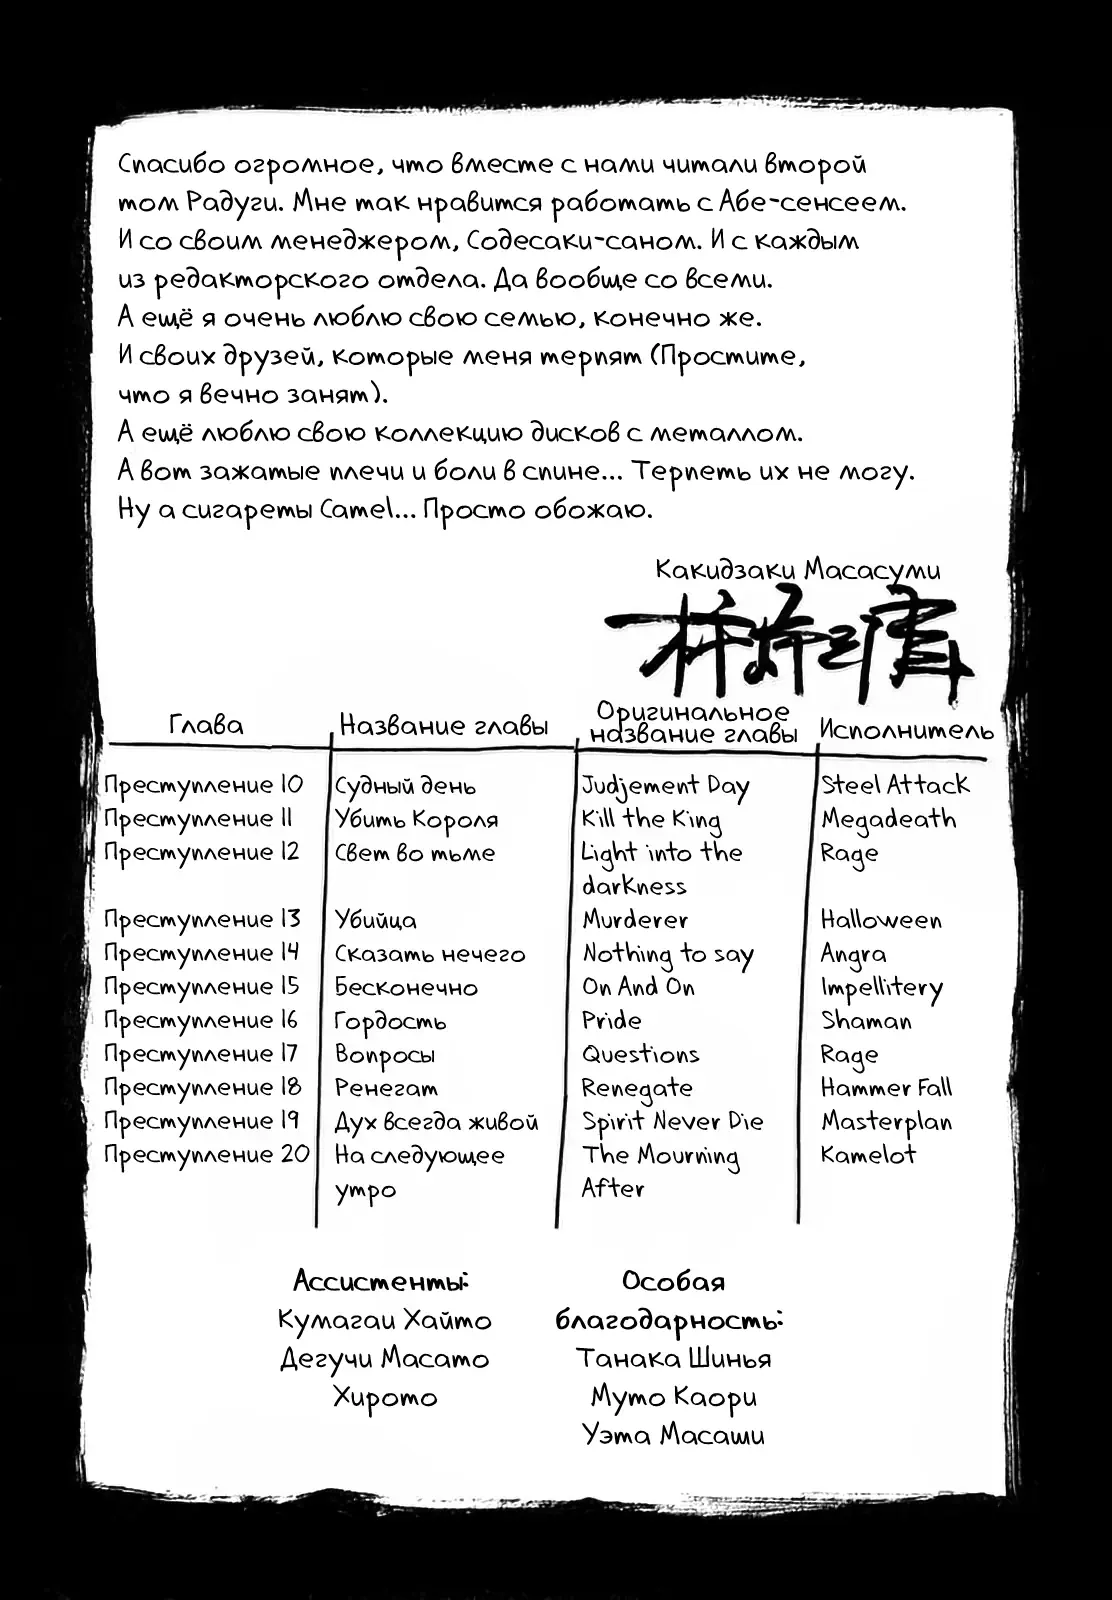 Спасибо огромное, что вместе с нами читали второй
том Радуги. Мне так нравится работать с Абе-сенсеем.
И со своим менеджером, Содесаки-саном. И с каждым
из редакторского отдела. Да вообще со всеми.
А ещё я очень люблю свою семью, конечно же.
И своих друзей, которые меня терпят (Простите,
что я вечно занят).
А ещё люблю свою коллекцию дисков с металлом.
А вот зажатые плечи и боли в спине... Терпеть их не могу.
Ну а сигареты Camel... Просто обожаю.
Какидзаки Масасуми
Глава Название главы Оригинальное название главы Исполнитель
Преступление 10 Судный день Judjement Day Steel Attack
Преступление 11 Убить Короля Kill the King Megadeath
Преступление 12 Свет во тьме Light into the Rage
darkness
Преступление 13 Убийца Murderer Halloween
Преступление 14 Сказать нечего Nothing to say Angra
Преступление 15 Бесконечно On And On Impellitery
Преступление 16 Гордость Pride Shaman
Преступление 17 Вопросы Questions Rage
Преступление 18 Ренегат Renegate Hammer Fall
Преступление 19 Дух всегда живой Spirit Never Die Masterplan
Преступление 20 На следующее The Mourning Kamelot
утро After
Ассистенты:
Кумагаи Хайто
Дегучи Масато
Хирото
Особая
благодарность:
Танака Шинья
Муто Каори
Уэта Масаши